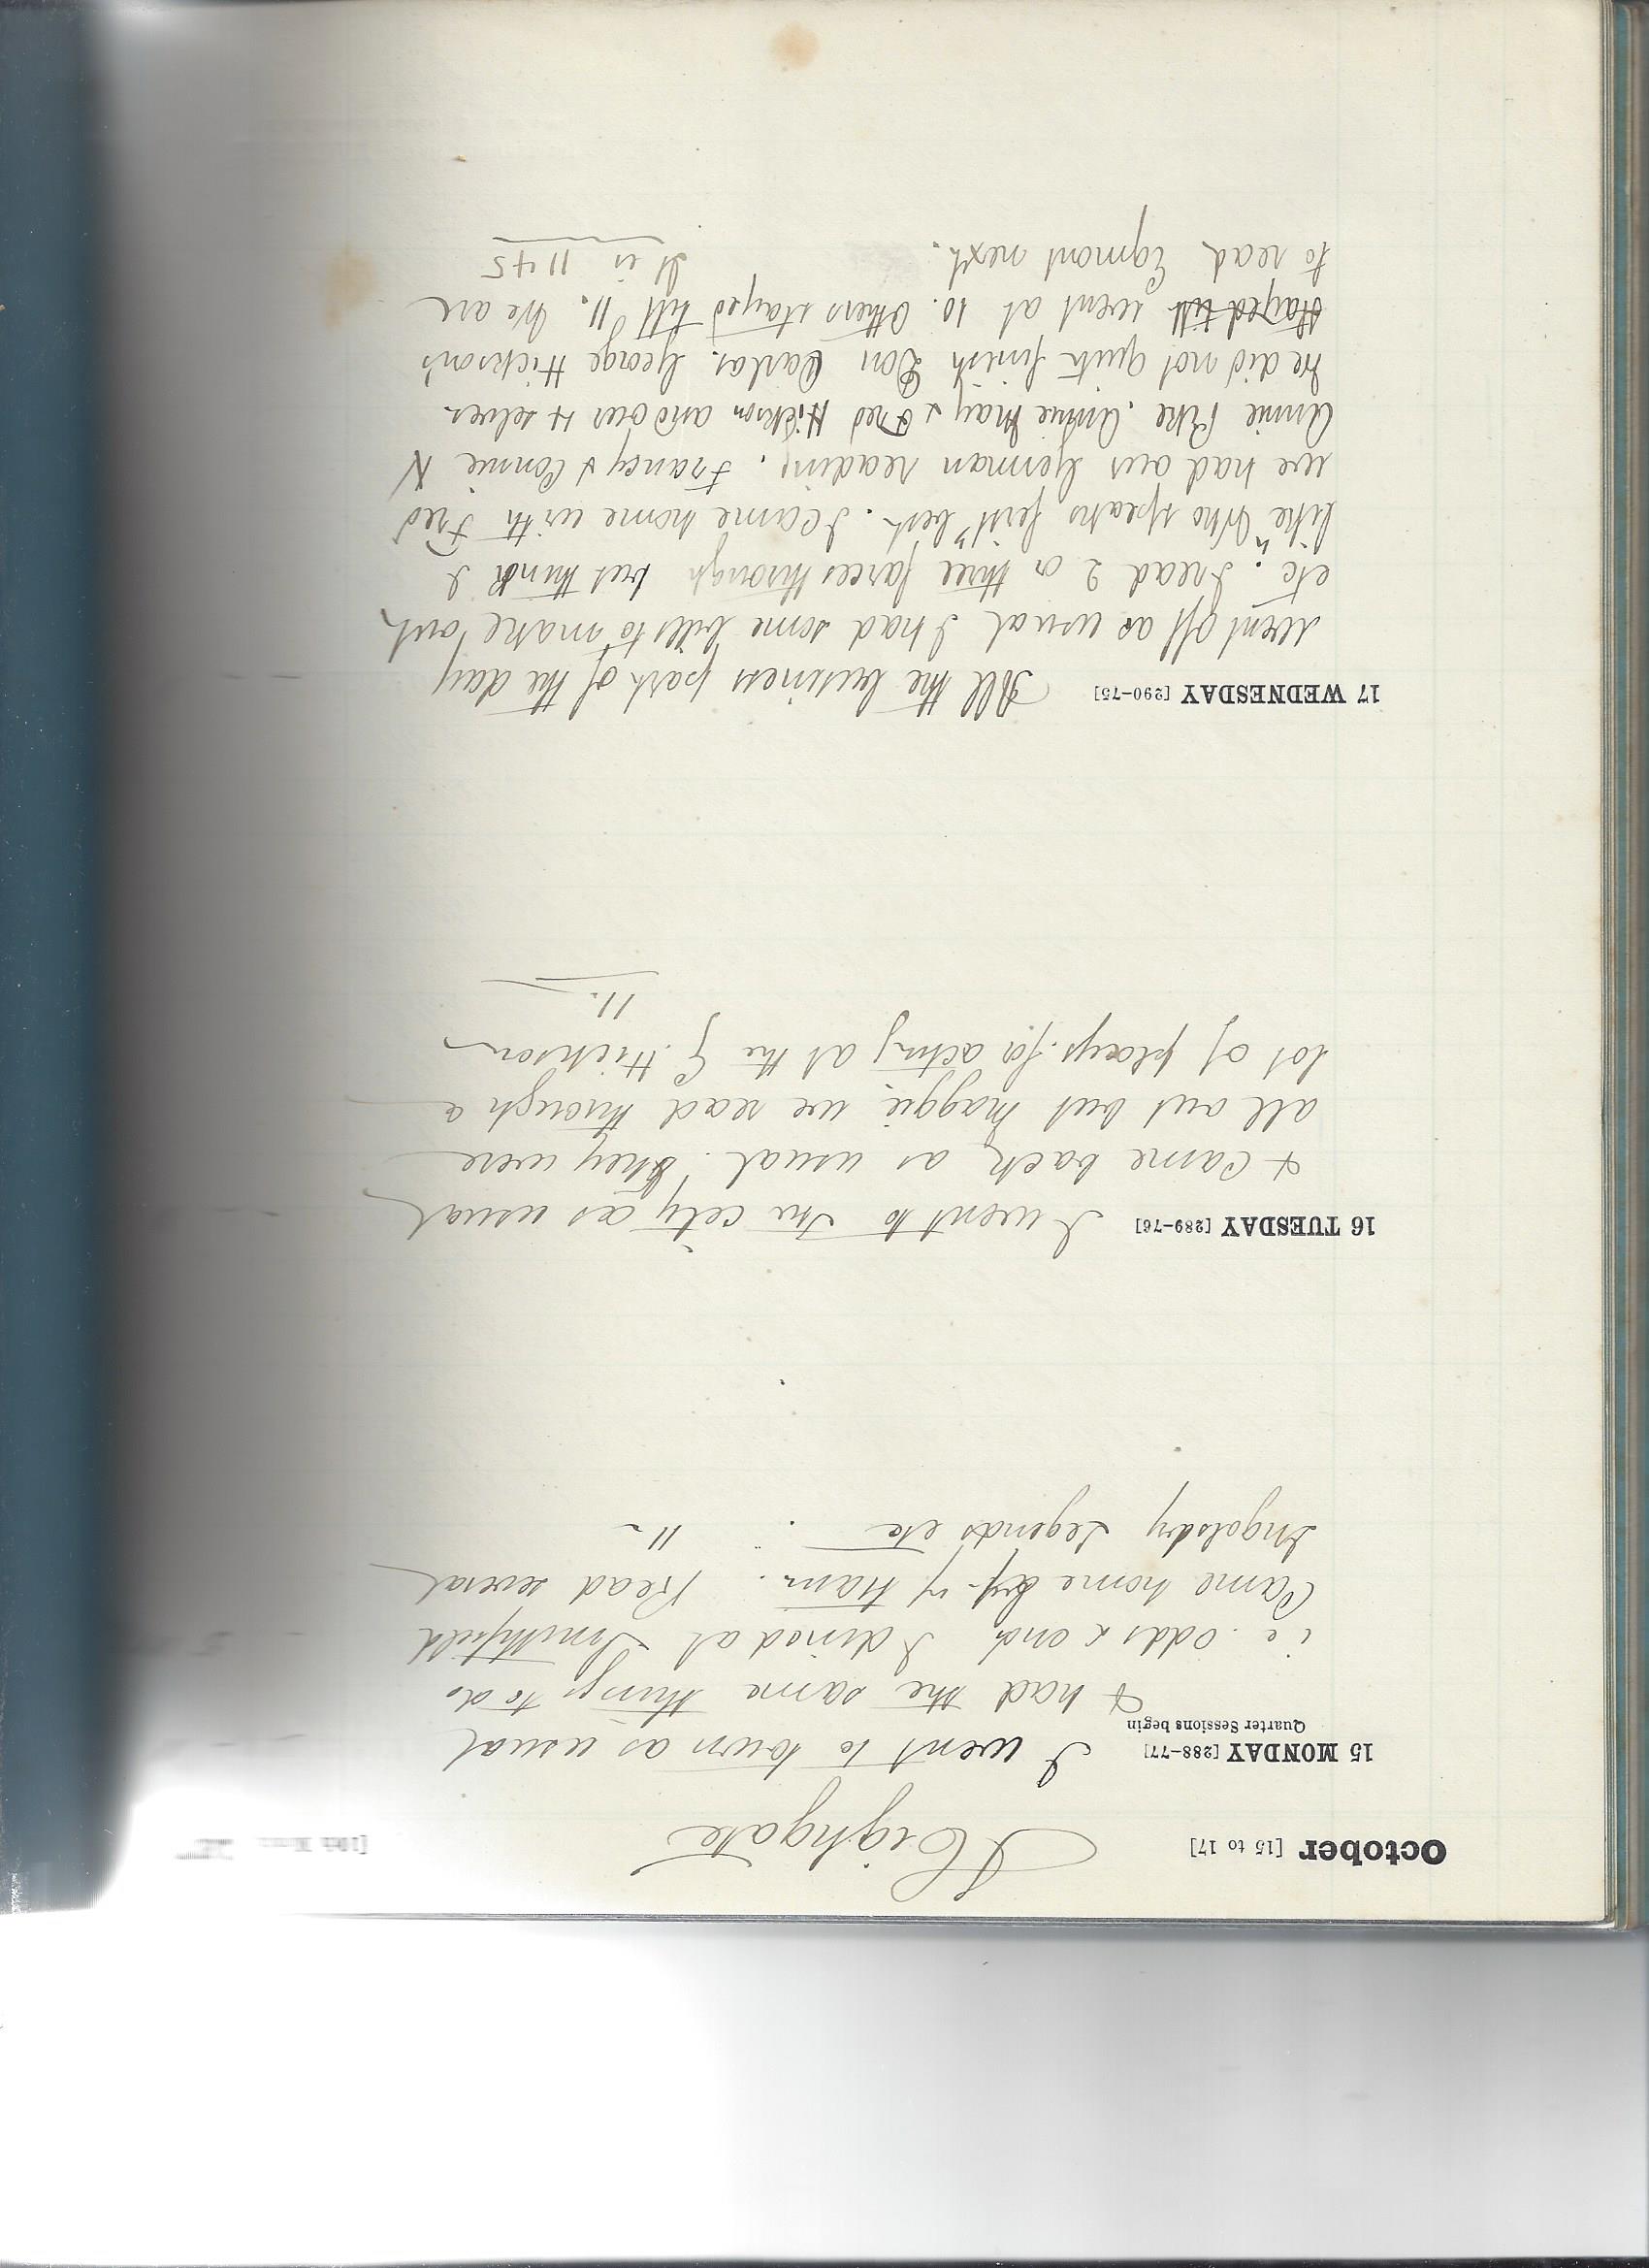 October [15 to 17]
Highgate
15 MONDAY [288-77] I went to town as usual
Quarter Sessions begin
& had the same things to do
i.e. odds & ends I dined at Smithfield
Came home by tram. Read several
Ingolsby Legends etc 11
16 TUESDAY [289-76] I went to the city as usual
& came back as usual. They were
all out but Maggie we read through a
lot of plays for acting at the G. Hickson
11.
17 WEDNESDAY [290-75] All the business part of the day
went off as usual I had some bills to make out
etc. I read 2 or three farces through but think I
like "Who speaks first" best. I came home with Fred
we had our German reading. Francy & Connie K
Annie Pike. Annie May & Fred Hickson and our 4 selves
we did not quite finish Don Carlos. George Hickson's
stayed till went at 10. Others stayed till 11. We are
to read Egmont next. It is 11 45